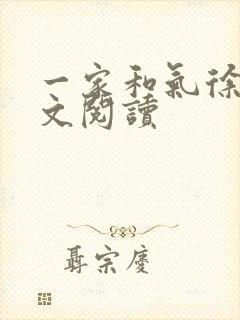 一家和氣徐
文閱讀
聶宗慶